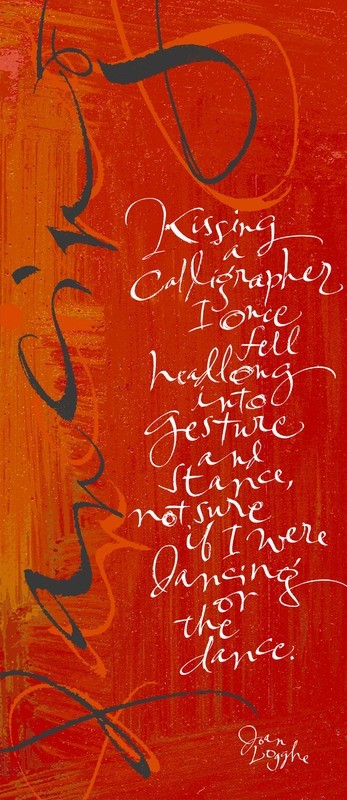 dancing
Kissing
a
Calligrapher
I once
fell
headlong
into
gesture
and
stance,
not sure
if I were
dancing
or
the
dance.
Joan
Logghe